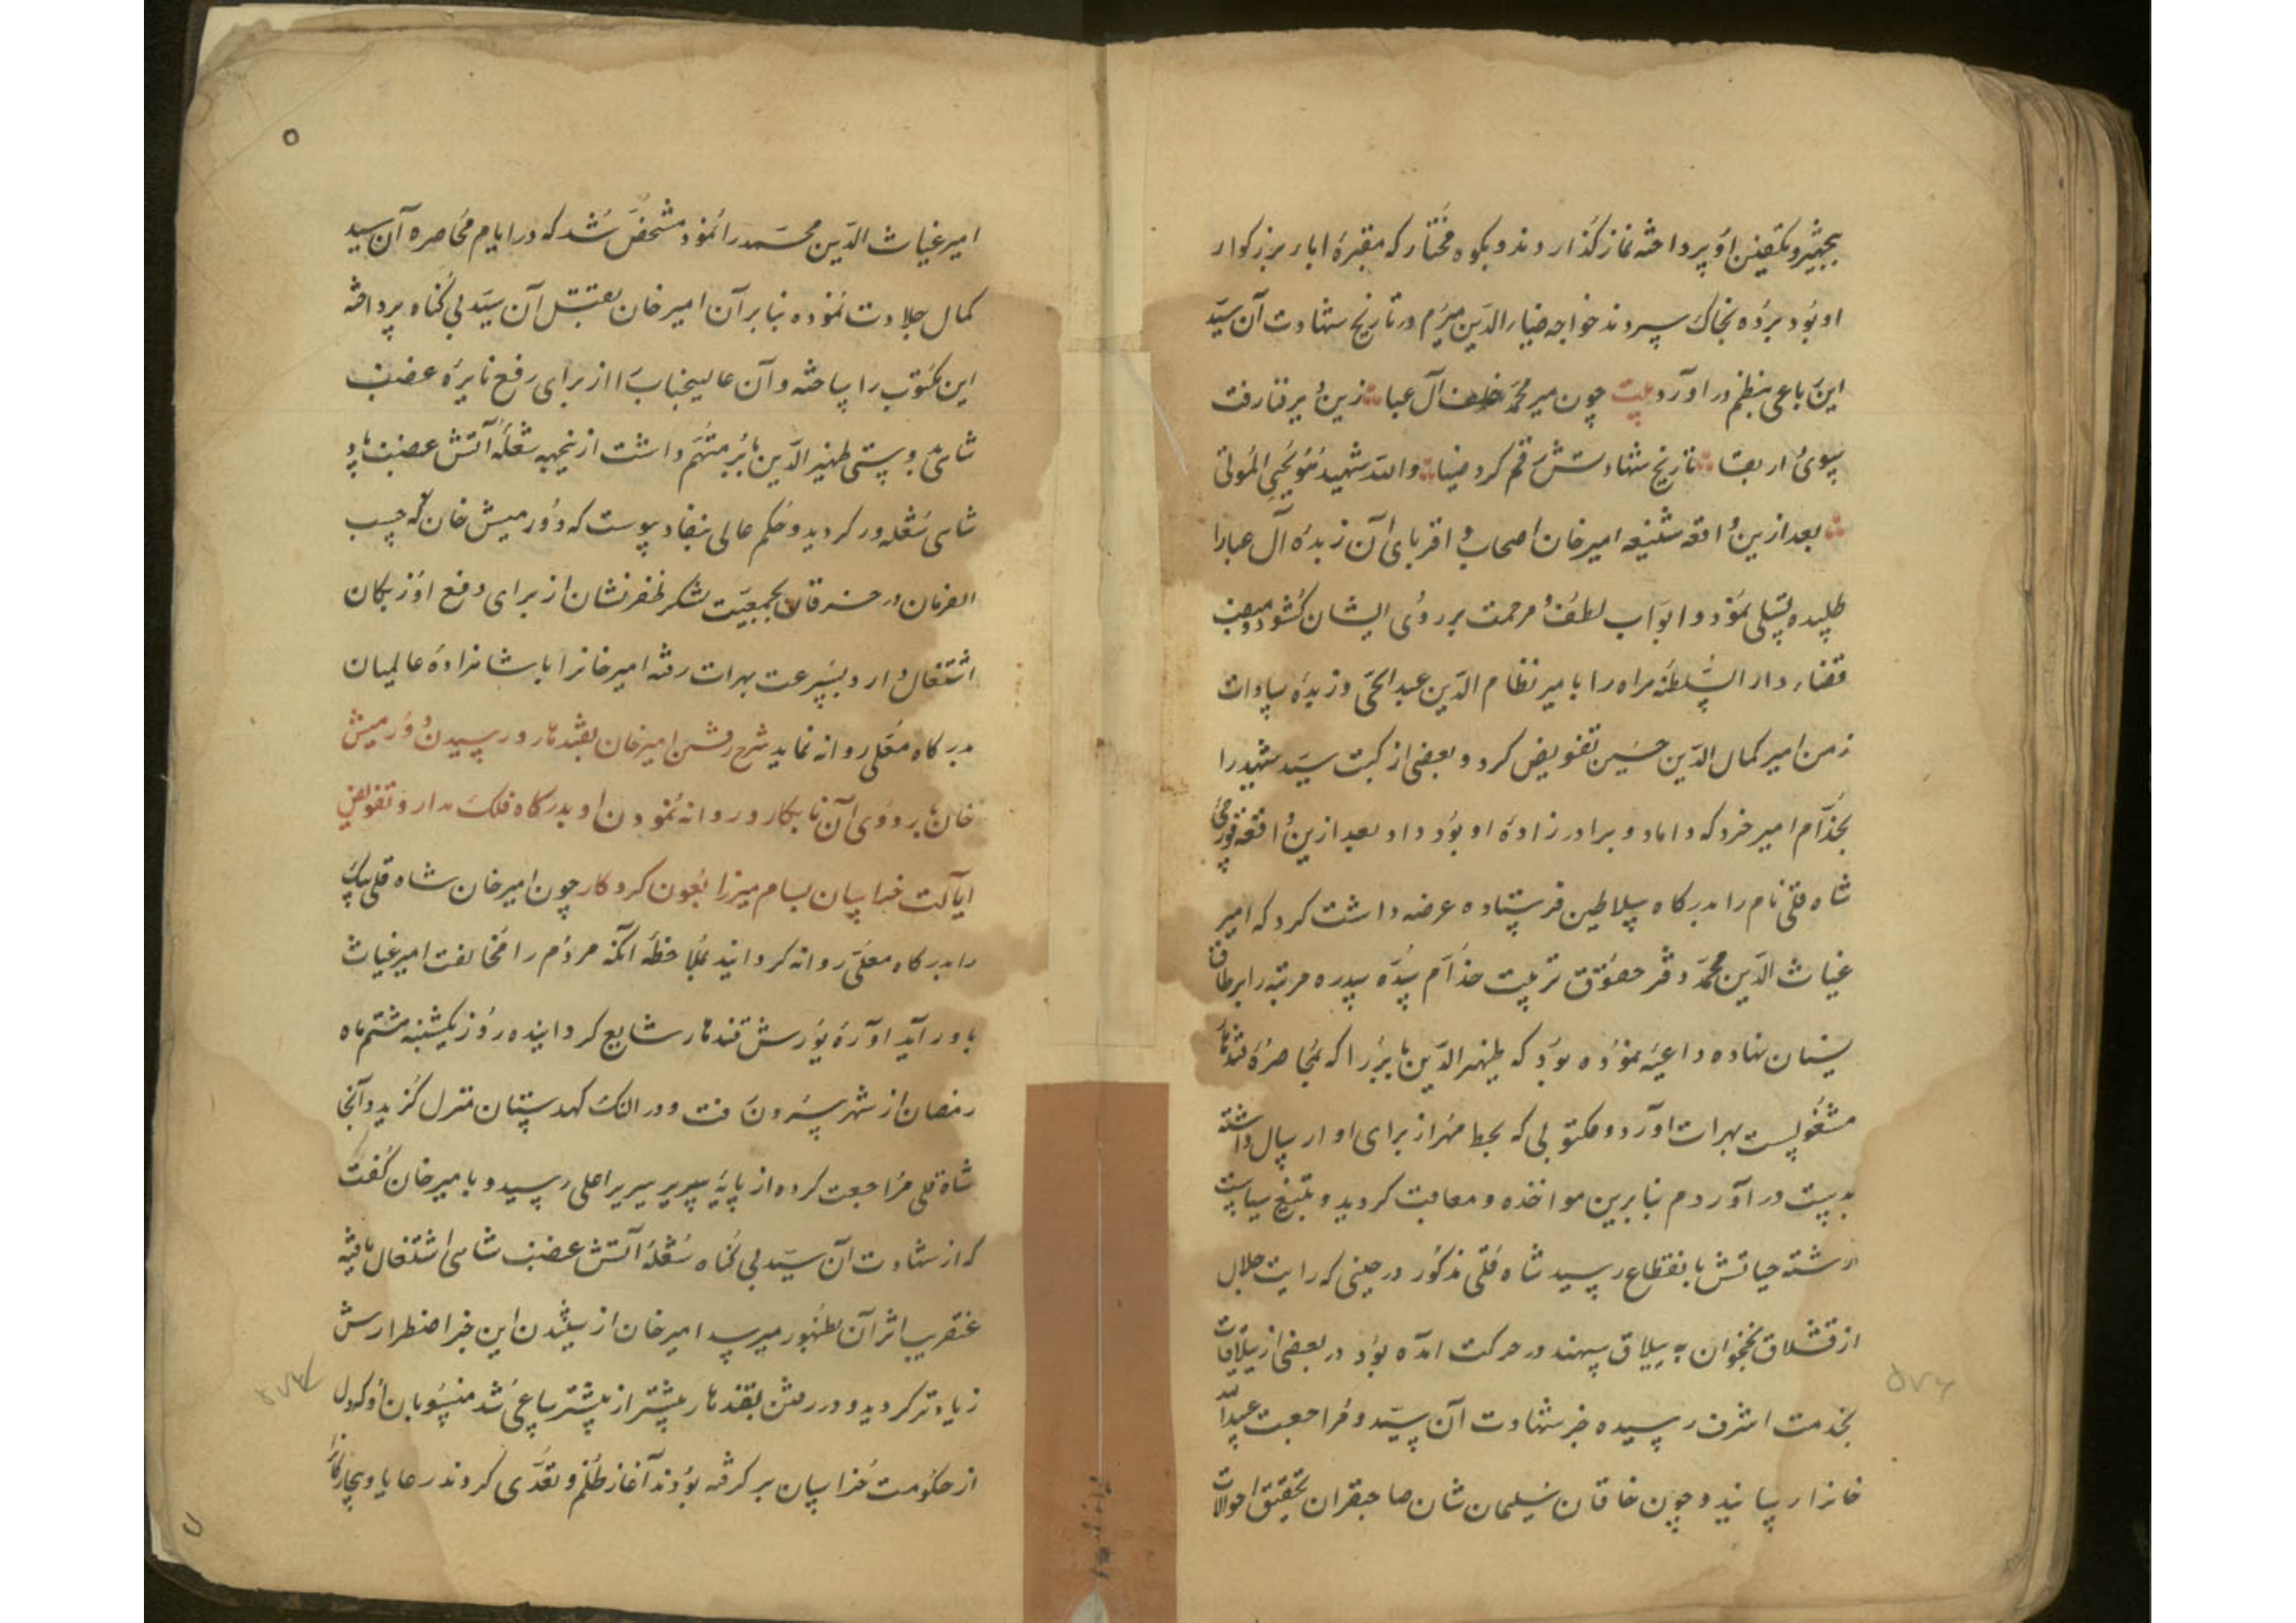 بتجهیز و تکفین او پرداخته نماز گذاردند و بکوه مختار که مقبرهٔ اباء بزرکوار
او بود برده بخاک سپردند خواجه ضیاءالدین میرم در تاریخ شهادت آن سید
این رباعی بنظم در اورد بیت چون میر محمد خلف آل عبا زین دیر فنا رفت
بسوی دار بقا تاریخ شهادتش رقم کرد ضیا والله شهید هو یحیی الموتی
بعد ازین واقعه شنیعه امیرخان اصحاب و اقربای آن زبدهٔ آل عبا را
طلبیده تسلی نمود و ابواب لطف و مرحمت بر روی ایشان کشود و منصب
قضاء دار السلطنه هراه را بامیر نظام الدین عبد الحی و زبدهٔ سادات
زمن امیر کمال الدین حسین تفویض کرد و بعضی از کتب سید شهید را
بخدام امیر خرد که داماد و برادر زادهٔ او بود داد بعد ازین واقعه قورجی
شاه قلی نام را بدرکاه سلاطین فرستاده عرضه داشت کرد که امیر
غیاث الدین محمد دفتر حقوق تربیت خدام سده سدره مرتبه را بر طاق
نسیان نهاده داعیه نموده بود که ظهیر الدین بابر را که بمحاصرهٔ قندهار
مشغولست بهرات اورد و مکتوبی که بخط مهر از برای او ارسال داشته
بدست در آوردم بنابرین مواخذه و معاقبت کردید و بتیغ سیاست
رشته حیاتش بانقطاع رسید شاه قلی مذکور در حینی که رایت جلال
از قشلاق نخجوان به ییلاق سهند در حرکت امده بود در بعضی از ییلاقات
بخدمت اشرف رسیده خبر شهادت آن سید و مراجعت عبید الله
خانرا رسانید و چون خاقان سلیمان شان صاحبقران تحقیق احوالات
امیر غیاث الدین محمد را نمود مشخص شد که در ایام محاصره آن سید
کمال جلادت نموده بنابر آن امیر خان بقتل آن سید بی کناه پرداخته
این مکتوب را ساخته و آن عالیجناب را از برای رفع نایرهٔ غضب
شاهی بدوستی ظهیر الدین بابر متهم داشت ازینجهه شعلهٔ آتش غضب پاد
شاهی شعله ور کردید و حکم عالی بنفاد پیوست که دورمیش خان که حسب
الفرمان در خرقان بجمعیت لشکر ظفر نشان از برای دفع اوزبکان
اشتغال دارد بسرعت بهرات رفته امیرخانرا با شاهزادهٔ عالمیان
بدرکاه معلی روانه نماید شرح رفتن امیرخان بقندهار و رسیدن دورمیش
خان بر روی آن نابکار و روانه نمودن او بدرکاه فلک مدار و تفویض
ایالت خراسان بسام میرزا بعون کردکار چون امیرخان شاه قلی بیک
را بدرکاه معلی روانه کردانید بملاحظهٔ آنکه مردم را مخالفت امیر غیاث
باور آید اوازهٔ یورش قندهار شایع کردانیده روز یکشنبه هشتم ماه
رمضان از شهر بیرون رفت و در النک کهدستان منزل کزید و آنجا
شاه قلی مراجعت کرده از پایهٔ سریر سریر اعلی رسید و بامیرخان کفت
که از شهادت آن سید بی کناه شعلهٔ آتش غضب شاهی اشتغال یافته
عنقریب اثر آن بظهور میرسد امیرخان از شنیدن این خبر اضطرارش
زیادتر کردید و در رفتن بقندهار بیشتر از پیشتر ساعی شد منسوبان او که دل
از حکومت خراسان بر کرفته بودند آغاز ظلم و تعدی کردند رعایا و بیچارکان